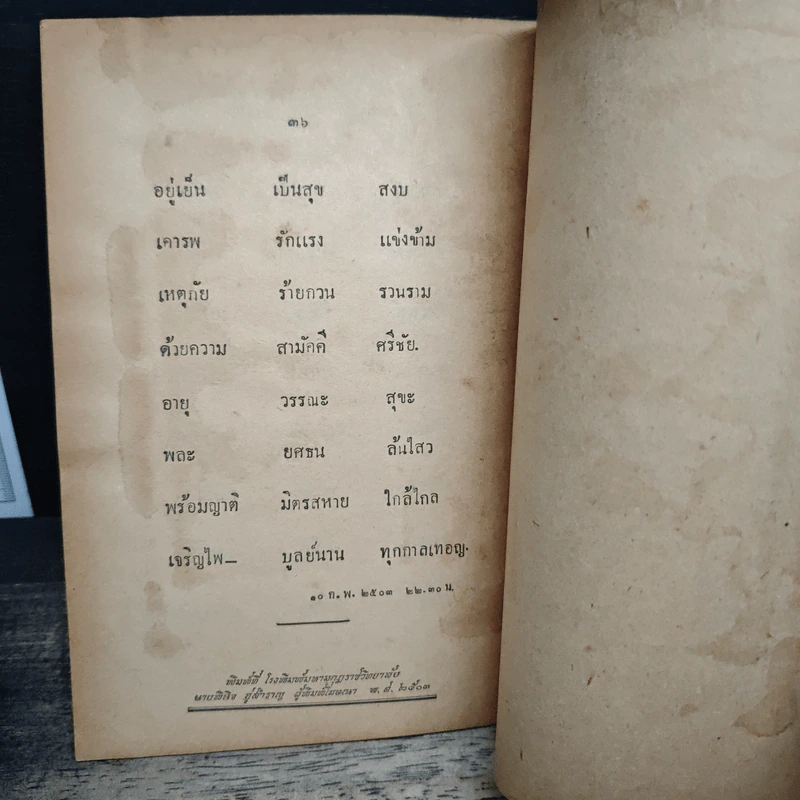 ๓๖
อยู่เย็น เป็นสุข สงบ
เคารพ รักแรง แข่งข้าม
เหตุภัย ร้ายกวน รวนราม
ด้วยความ สามัคคี ศรีชัย.
อายุ วรรณะ สุขะ
พละ ยศธน ล้นใสว
พร้อมญาติ มิตรสหาย ใกล้ไกล
เจริญไพ— บูลย์นาน ทุกกาลเทอญ.
๑๐ ก.พ. ๒๕๐๓ ๒๒.๓๐ น.
พิมพ์ที่ โรงพิมพ์มหามกุฏราชวิทยาลัย
นาย สำราญ ผู้พิมพ์โฆษณา พ.ศ. ๒๕๐๓